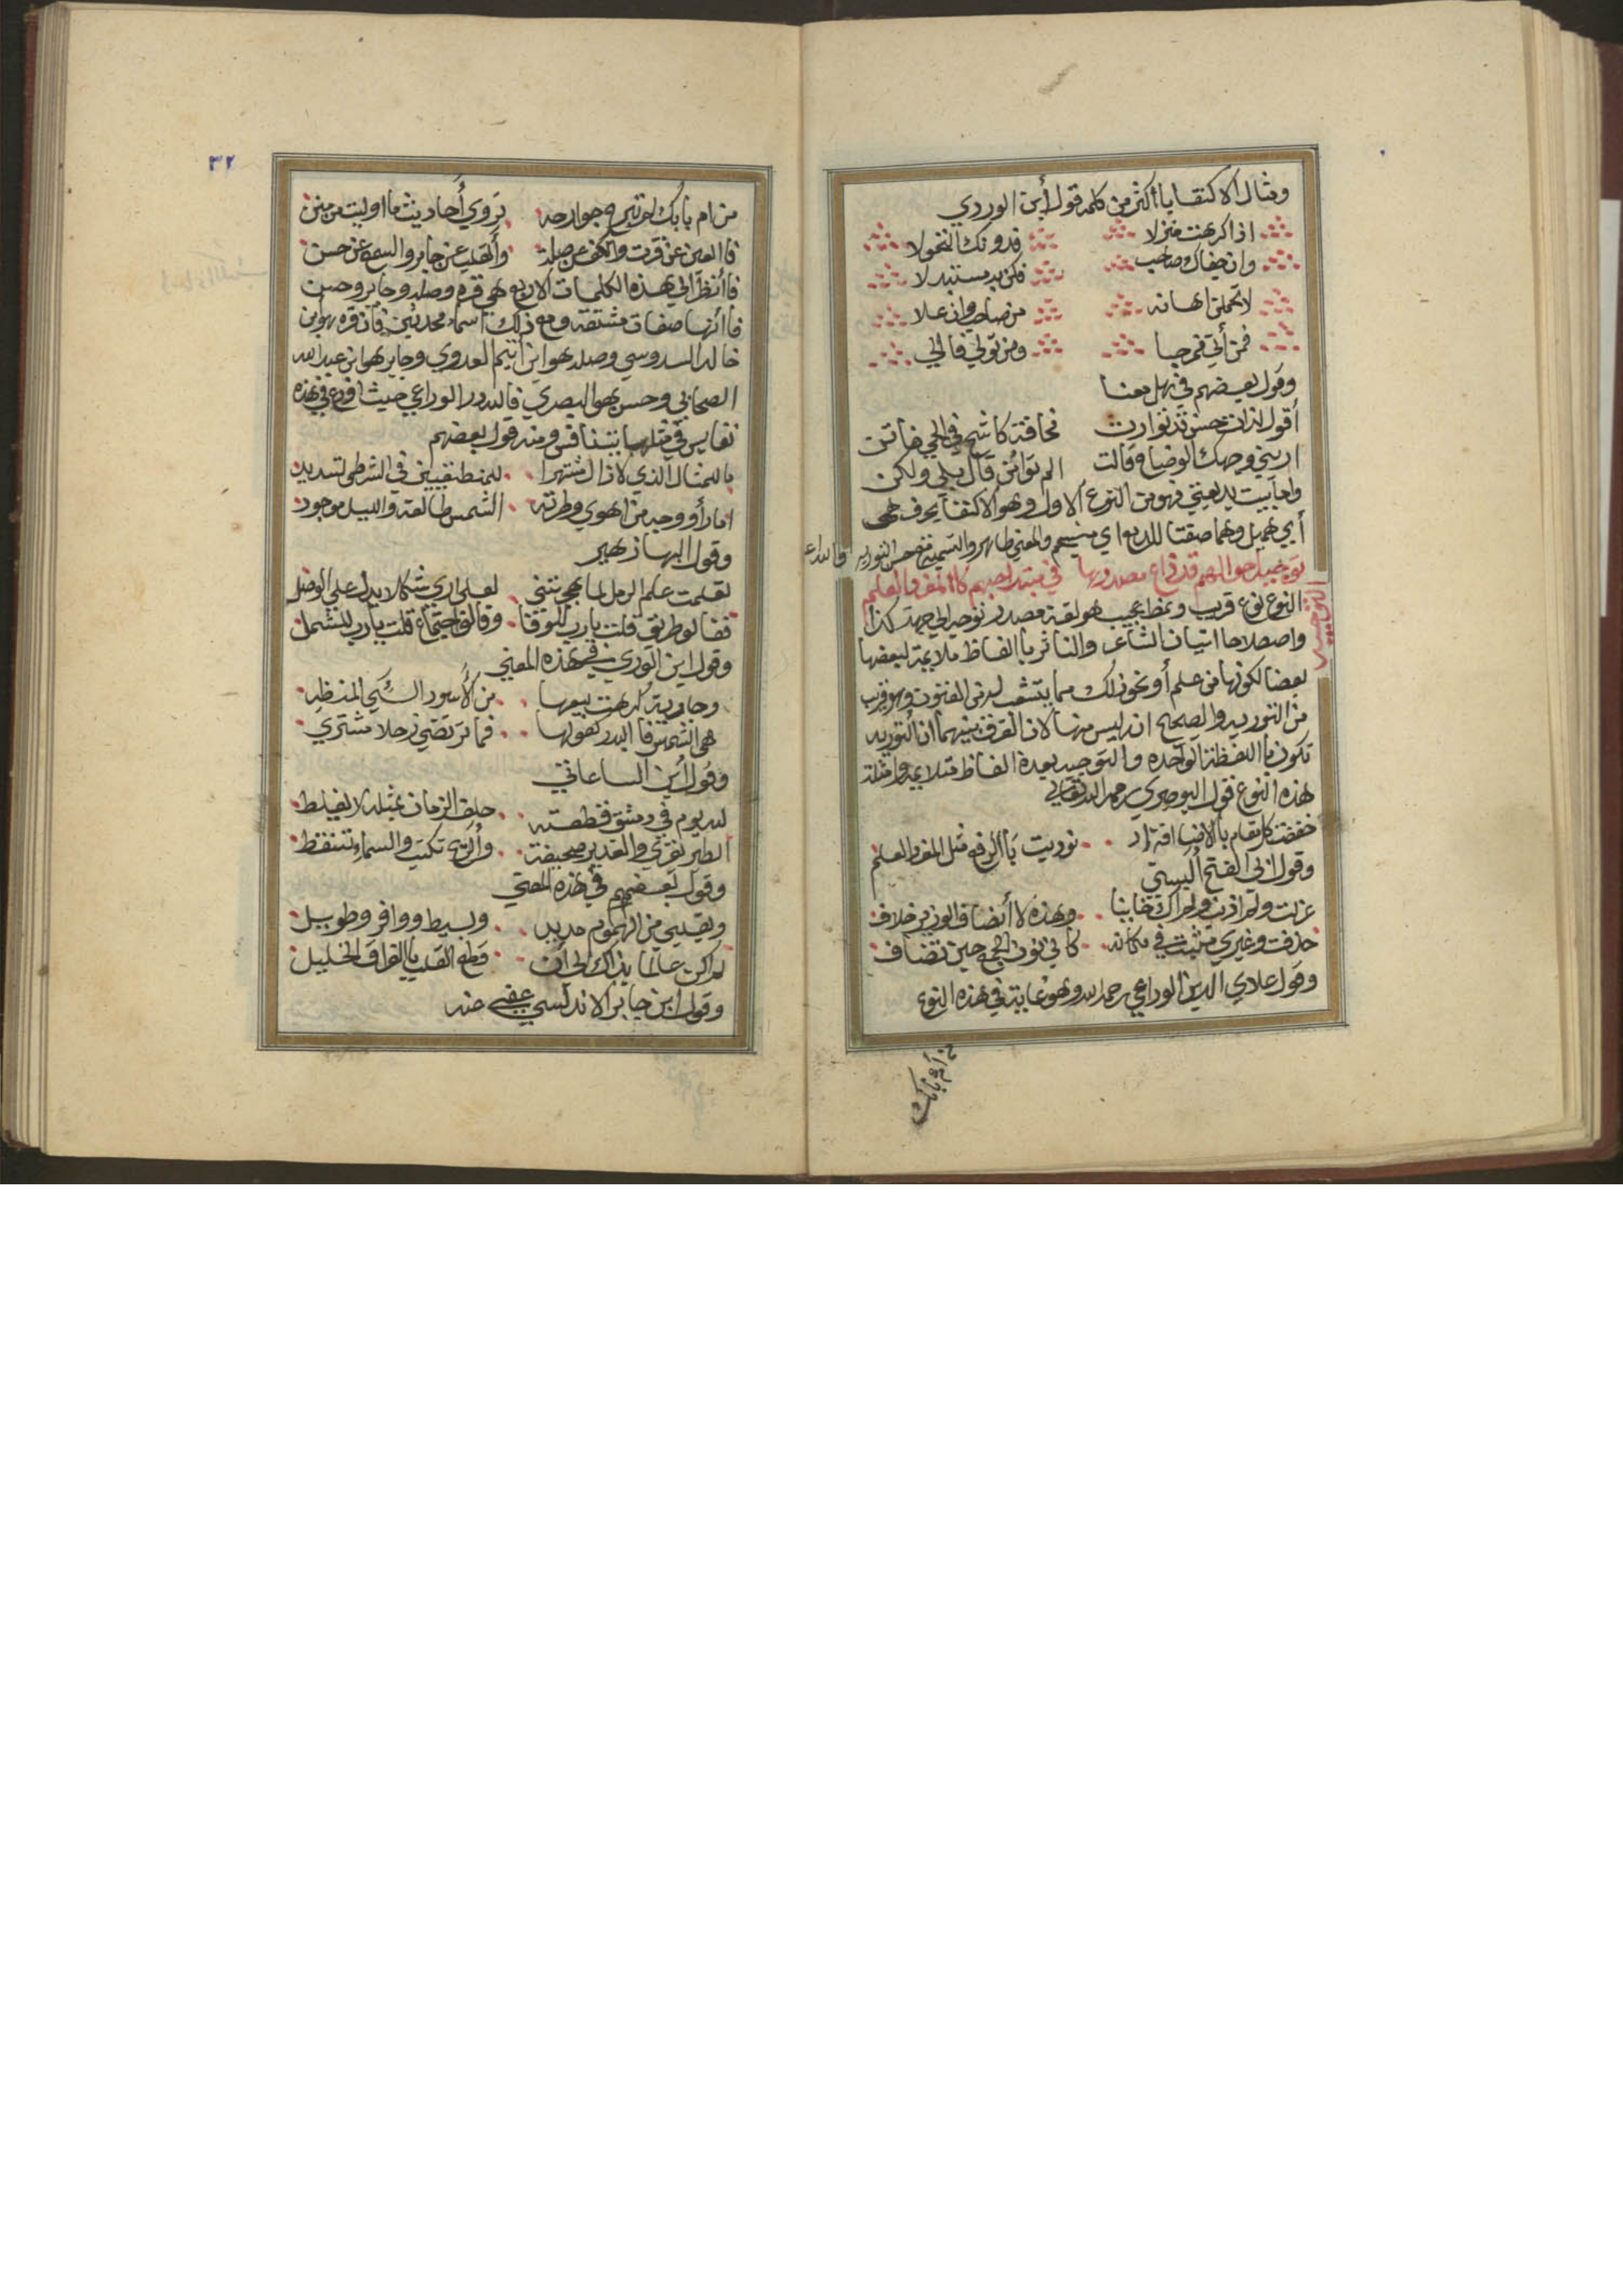 ومثال الاكتفا باأكثر من كلمه قول أبن الوردي
اذا كرهت منزلا فدونك التحولا
وان جفاك صاحب فكن به مستبدلا
لا تحملن اهانه من صاحب وان علا
فمن أتي فمرحبا ومن تولي فالي
وقول بعضهم في
أقول اذان حسن قد توارت مخافة كاشح في الحي فاتن
اريني وجهك الوضاح قالت الم تؤمن قال بلي ولكن
واما بيت بديعيتي فهو من النوع الاول وهو الاكتفا بحرف
أي وهما صفتا للدمع اي منسجم والمعني ظاهر والتسميه مع حسن التوريه والله اع
توجيه احوالهم قد ذاع مصدرها في مبتدا حبهم كاالمفرد العلم
التوجيه
النوع نوع قريب ونمط عجيب هو لغة مصدر توجه الي جهت كذا
واصطلاحا اتيان الشاعر والناثر باالفاظ ملايمة لبعضها
بعضا لكونها من علم أو نحو ذلك مما يتشعب له من الفنون وهو قريب
من التوريه والصحيح انه ليس منها لان الفرق بينهما ان التوريه
تكون باللفظة الواحده والتوجيه بعدة الفاظ متلايمه وامثلة
هذه النوع قول البوصري رحمه الله تعالي
خفضت كل مقام بالاضافة اذ نوديت باالرفع مثل المفرد العلم
وقول ابي الفتح البستي
عزلت ولم اذنب ولم اك خاينا وهذه لا أنصاف الوزير خلاف
حذفت وغيري مثبت في مكانه كاني نون الجمع حين تضاف
وقول علاي الدين الوداعي رحمه الله وهو غاية في هذه النوع
من أم بابك
٣٢
من ام بابك لم تبرح جوارحه تروي أحاديث ما اوليت من منن
فاالعين عن قرت والكف عن صلة والقلب عن جابر والسمع عن حسن
فاأنظر الي هذه الكلمات الاربع وهي قره وصله وجابر وحسن
فاانها صفات مشتقه ومع ذلك اسماء محدثين فان قره هو ابن
خالد السدوسي وصله هو ابن اشيم العدوي وجابر هو ابن عبد الله
الصحابي وحسن هو البصري فالله در الوداعي حيث افرغ في هذه
نفايس في مثلها يتنافس ومنه قول بعضهم
باللمثال الذي لا زال مشتهرا للمنطقيين في الشرطي تسديد
اما رأو وجه من اهوي وطرته الشمس طالعة والليل موجود
وقول البها زهير
تعلمت علم الرمل لما هجرتني لعلي اري شكلا يدل علي الوصل
فقالو طريق قلت يارب للوقا وقالو اجتماع قلت يارب للشمل
وقول ابن الوردي في هذه المعني
وجارية كرهت بيعها من الأسود السيئ المنظر
هي الشمس فا البدر كفو لها فما ترتضي زحلا مشتري
وقول أبن الساعاتي
لله يوم في دمشق قطعته حلف الزمان بمثله لا يغلط
الطير تقري والغدير صحيفة والريح تكتب والسماء تنقط
وقول بعضهم في هذه المعني
وبقلبي من الهموم مديد وبسيط ووافر وطويل
لم اكن عالما بذاك الي أن قطع القلب باالفراق الخليل
وقول ابن جابر الاندلسي عفي عنه